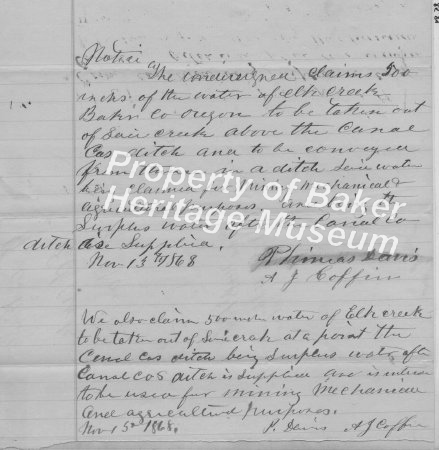 Notice
The undersigned claims 500
inches of the water of Elk creek
Baker co oregon to be taken out
of Said creek above the Canal
Cos ditch and to be conveyed
from in a ditch Said water
Claimed for Mining Mechanical &
agricultural purposes
Surplus water after the Canal co
ditch are Supplied.
Nov 13th 1868 Phineas Davis
A J Coffin
We also claim 500 inches water of Elk creek
to be taken out of Said creek at a point the
Canal Cos ditch being Surplus water after
Canal Cos ditch is Supplied and is
to be used for mining Mechanical
and agricultural purposes.
Nov 15th 1868. P. Davis A J Coffin
Property of Baker
Heritage Museum